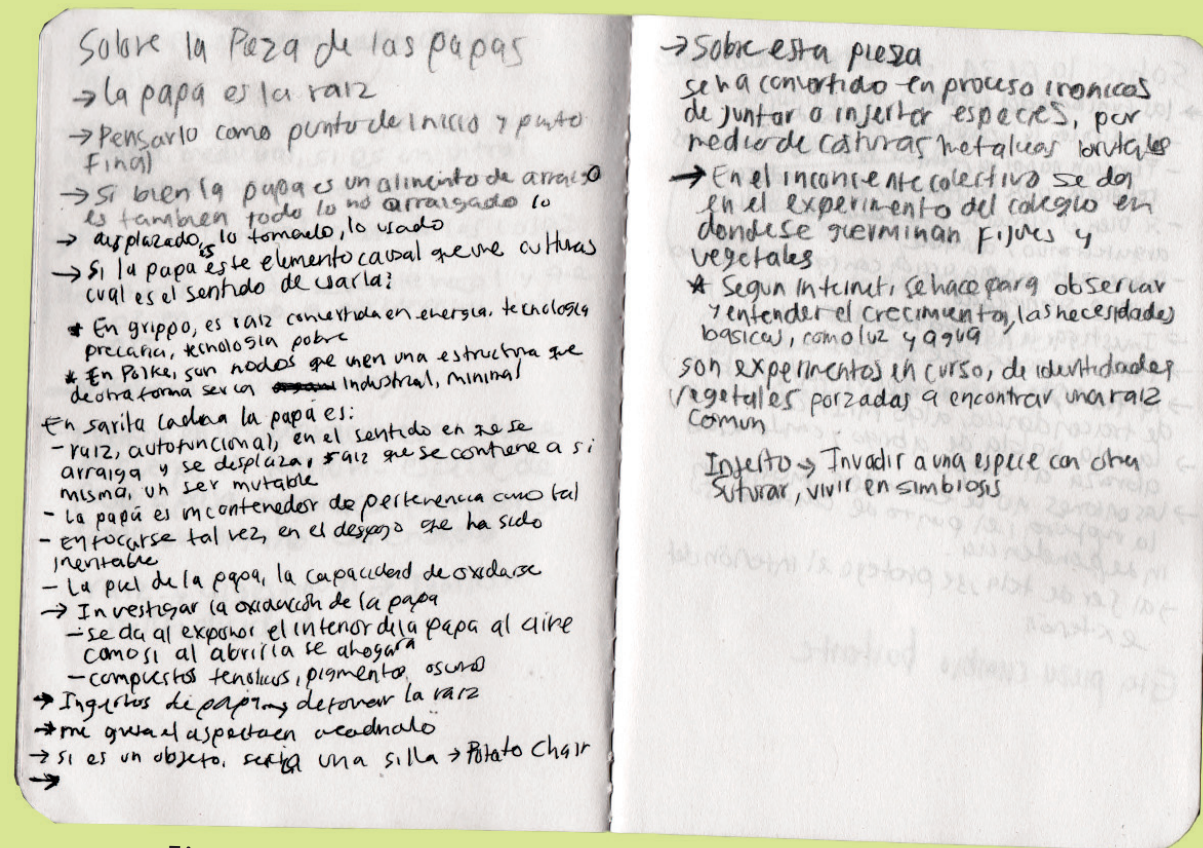 Sobre la Pieza de las papas
→ la papa es la raiz
→ Pensarlo como punto de inicio y punto
Final
→ Si bien la papa es un alimento de arraigo
es tambien todo lo no arraigado lo
→ desplazado, lo tomado, lo usado
→ Si la papa es este elemento causal que une culturas
cual es el sentido de usarla?
* En grippo, es raiz convertida en energia, tecnologia
precaria, tecnologia pobre
* En Polke, son nodos que unen una estructura que
de otra forma seria industrial, minimal
En sarita cadena la papa es:
- raiz, autofuncional, en el sentido en que se
arraiga y se desplaza, raiz que se contiene a si
misma, un ser mutable
- La papa es contenedor de pertenencia como tal
- enfocarse tal vez, en el despojo que ha sido
inevitable
- La piel de la papa, la capacidad de oxidarse
→ Investigar la oxidación de la papa
- se da al exponer el interior de la papa al aire
como si al abrirla se ahogara
- compuestos fenolicos, pigmento, oscuro
→ Ingertos de papa → deformar la raiz
→ me gusta el aspecto en
→ si es un objeto, seria una silla → Potato Chair
→
→ Sobre esta pieza
se ha convertido en proceso ironicos
de juntar o injertar especies, por
medio de metalicas brutales
→ En el inconciente colectivo se da
en el experimento del colegio en
donde se germinan y
vegetales
* Segun internet, se hace para observar
y entender el crecimiento, las necesidades
basicas, como luz y agua
son experimentos en curso, de identidades
vegetales forzadas a encontrar una raiz
comun
Injerto → Invadir a una especie con otra
Suturar, vivir en simbiosis